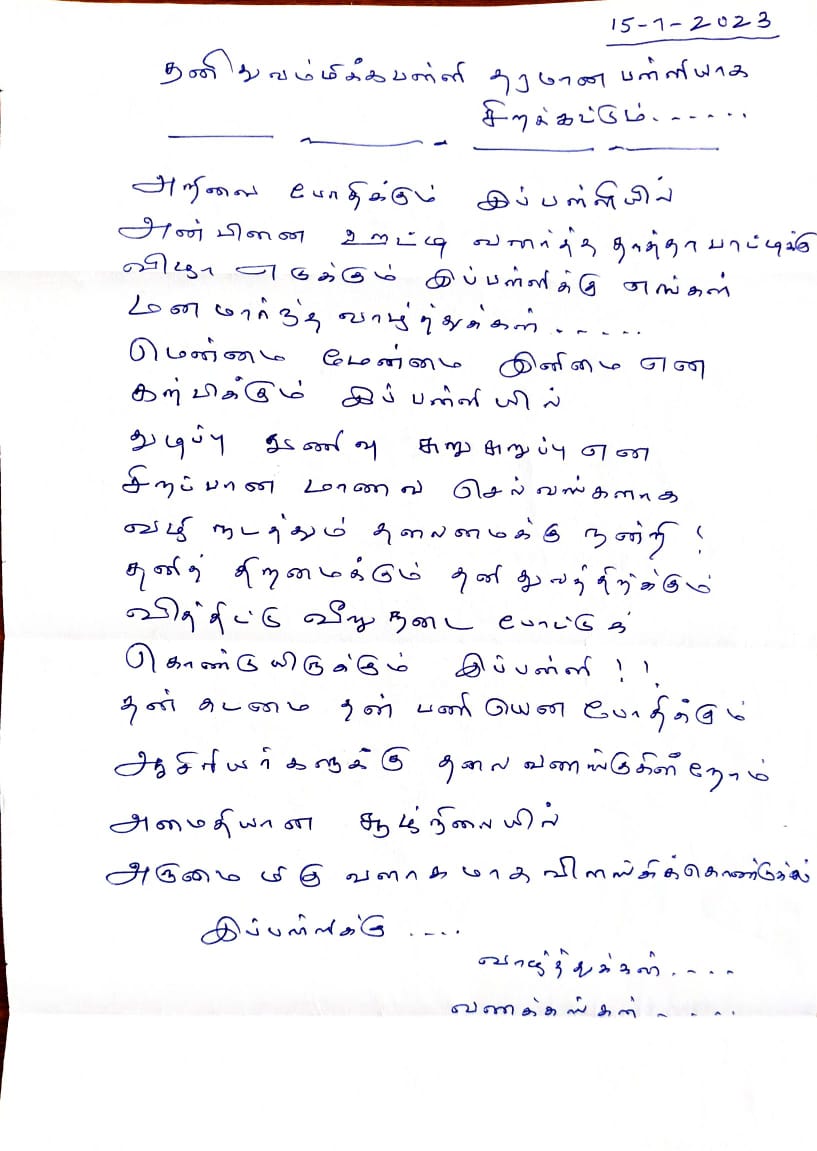 15-7-2023
தனிதுவம்மிக்கபள்ளி தரமான பள்ளியாக
சிறக்கட்டும்......
அறிவை போதிக்கும் இப்பள்ளியில்
அன்பினை ஊட்டி வளர்த்த தாத்தா பாட்டிக்கு
விழா எடுக்கும் இப்பள்ளிக்கு எங்கள்
மனமார்ந்த வாழ்த்துக்கள்.....
மென்மை மேன்மை இனிமை என
கற்பிக்கும் இப்பள்ளியில்
துடிப்பு துணிவு சுறுசுறுப்பு என
சிறப்பான மாணவ செல்வங்களாக
வழி நடத்தும் தலைமைக்கு நன்றி!
தனித் திறமைக்கும் தனிதுவத்திற்க்கும்
வித்திட்டு வீறுநடை போட்டுக்
கொண்டுயிருக்கும் இப்பள்ளி!!
தன் கடமை தன் பணியென போதிக்கும்
ஆசிரியர்களுக்கு தலை வணங்குகிறோம்
அமைதியான சூழ்நிலையில்
அருமை மிகு வளாகமாக
இப்பள்ளிக்கு ....
வாழ்த்துக்கள்....
வணக்கங்கள்.....